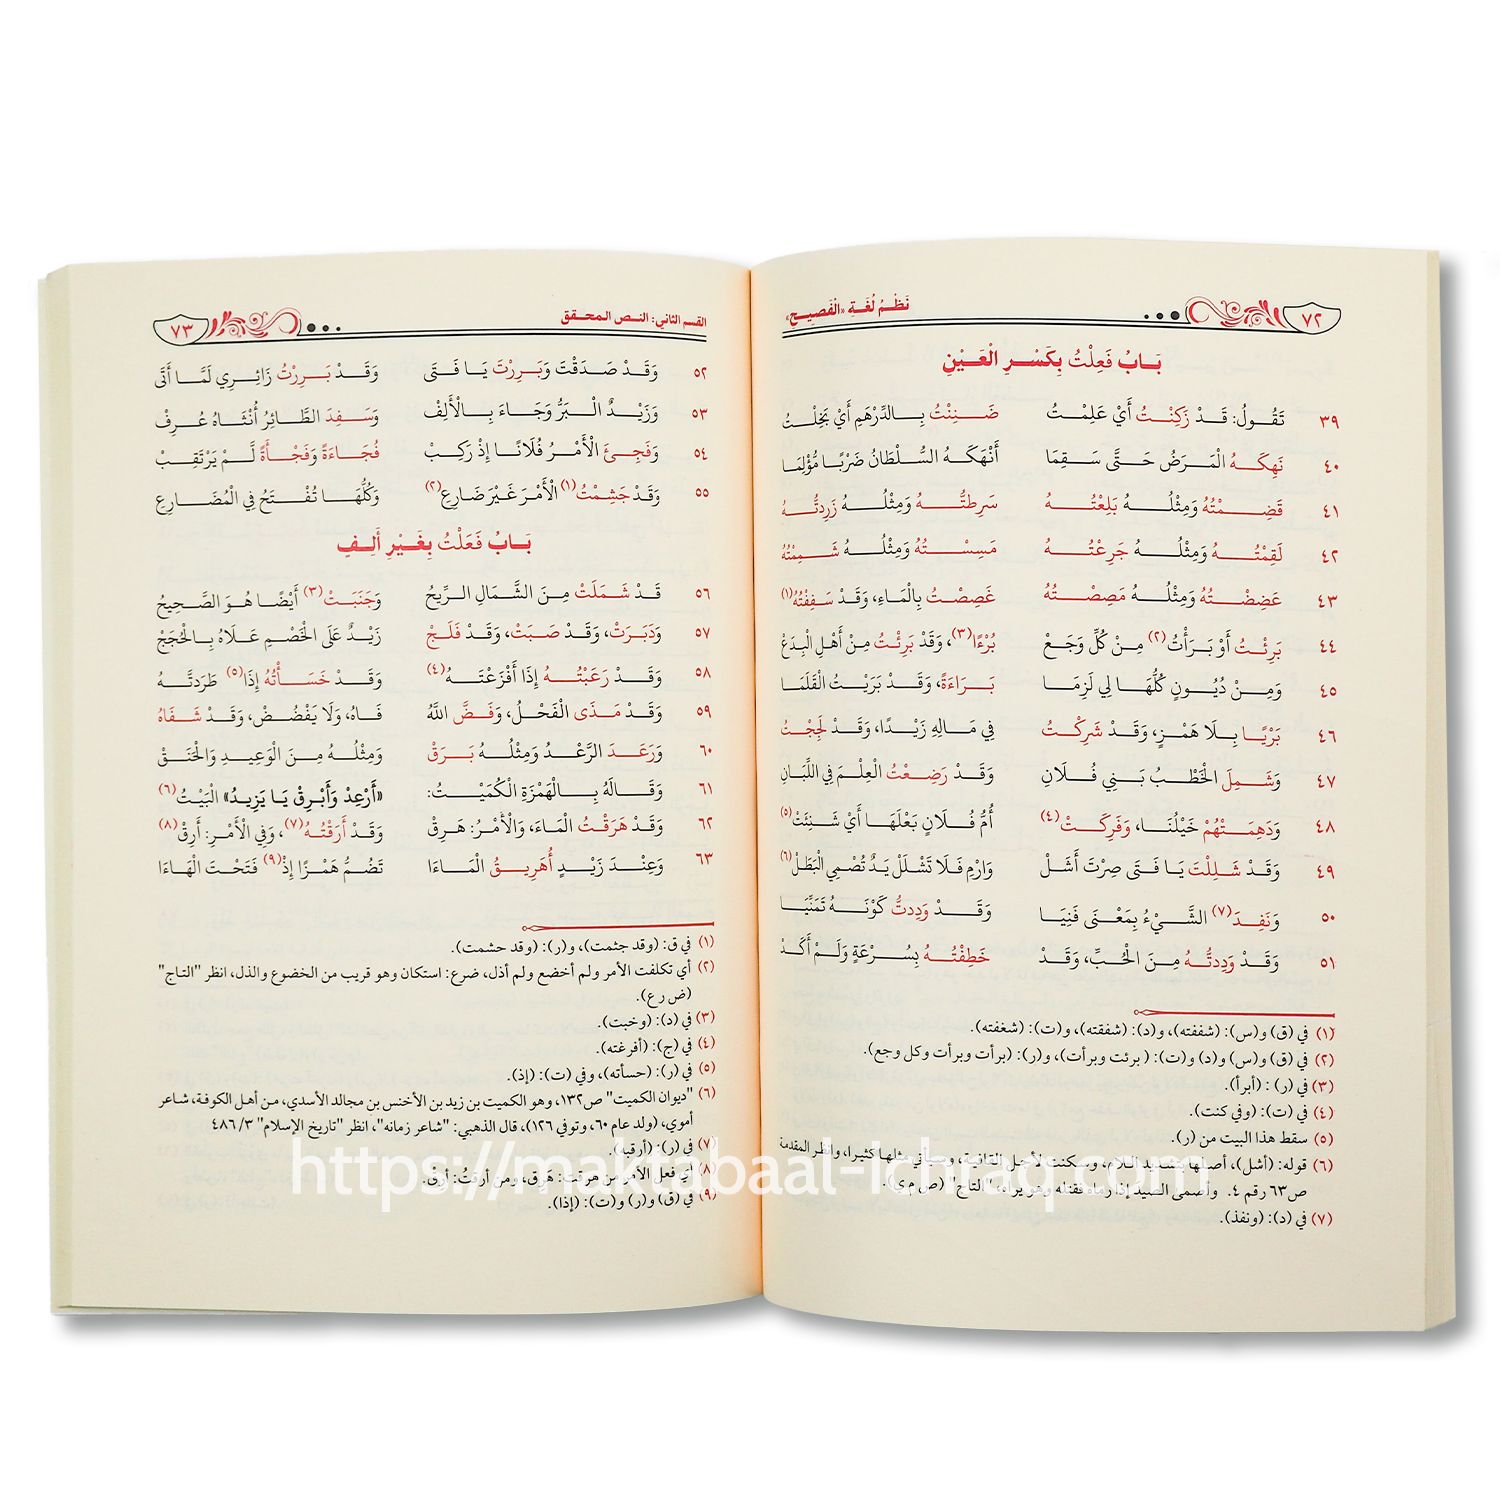 ٧٢ نَظْمُ لُغَةِ «الْفَصِيحِ»
بَابُ فَعِلْتُ بِكَسْرِ الْعَيْنِ
٣٩ تَقُولُ: قَدْ زَكِنْتُ أَيْ عَلِمْتُ ضَنِنْتُ بِالدِّرْهَمِ أَيْ بَخِلْتُ
٤٠ نَهِكَهُ الْمَرَضُ حَتَّى سَقِمَا أَنْهَكَهُ السُّلْطَانُ ضَرْبًا مُؤْلِمَا
٤١ قَضِمْتُهُ وَمِثْلُهُ بَلِعْتُهُ سَرِطتُّهُ وَمِثْلُهُ زَرِدتُّهُ
٤٢ لَقِمْتُهُ وَمِثْلُهُ جَرِعْتُهُ مَسِسْتُهُ وَمِثْلُهُ شَمِمْتُهُ
٤٣ عَضِضْتُهُ وَمِثْلُهُ مَصِصْتُهُ غَصِصْتُ بِالْمَاءِ، وَقَدْ سَفِفْتُهُ(١)
٤٤ بَرِئْتُ أَوْ بَرَأْتُ(٢) مِنْ كُلِّ وَجَعْ بُرْءًا(٣)، وَقَدْ بَرِئْتُ مِنْ أَهْلِ الْبِدَعْ
٤٥ وَمِنْ دُيُونٍ كُلُّهَا لِي لَزِمَا بَرَاءَةً، وَقَدْ بَرَيْتُ الْقَلَمَا
٤٦ بَرْيًا بِلَا هَمْزٍ، وَقَدْ شَرِكْتُ فِي مَالِهِ زَيْدًا، وَقَدْ لَجِجْتُ
٤٧ وَشَمِلَ الْخَطْبُ بَنِي فُلَانِ وَقَدْ رَضِعْتُ الْعِلْمَ فِي اللِّبَانِ
٤٨ وَدَهِمَتْهُمْ خَيْلُنَا، وَفَرِكَتْ(٤) أُمُّ فُلَانٍ بَعْلَهَا أَيْ شَنِئَتْ(٥)
٤٩ وَقَدْ شَلِلْتَ يَا فَتَى صِرْتَ أَشَلْ وَارْمِ فَلَا تَشْلَلْ يَدٌ تُصْمِي الْبَطَلْ(٦)
٥٠ وَنَفِدَ(٧) الشَّيْءُ بِمَعْنَى فَنِيَا وَقَدْ وَدِدتُّ كَوْنَهُ تَمَنِّيَا
٥١ وَقَدْ وَدِدتُّهُ مِنَ الْحُبِّ، وَقَدْ خَطِفْتُهُ بِسُرْعَةٍ وَلَمْ أَكَدْ
(١) في (ق) و(س): (شففته)، و(د): (شفقته)، و(ت): (شغفته).
(٢) في (ق) و(س) و(د) و(ت): (برئت وبرأت)، و(ر): (برأت وبرأت وكل وجع).
(٣) في (ر) : (أبرأ).
(٤) في (ت): (وفي كنت).
(٥) سقط هذا البيت من (ر).
(٦) قوله: (أشل)، أصلها بتشديد اللام، وسكنت لأجل القافية، وسيأتي مثلها كثيرا، وانظر المقدمة
ص٦٣ رقم ٤. وأصمى الصيد إذا رماه فقتله وهو يراه، "التاج" (ص م ي).
(٧) في (د): (ونفذ).
القسم الثاني: النص المحقق ٧٣
٥٢ وَقَدْ صَدَقْتَ وَبَرِرْتَ يَا فَتَى وَقَدْ بَرِرْتُ زَائِرِي لَمَّا أَتَى
٥٣ وَزَيْدٌ الْبَرُّ وَجَاءَ بِالْأَلِفْ وَسَفِدَ الطَّائِرُ أُنْثَاهُ عُرِفْ
٥٤ وَفَجِئَ الْأَمْرُ فُلَانًا إِذْ رَكِبْ فُجَاءَةً وَفَجْأَةً لَمْ يَرْتَقِبْ
٥٥ وَقَدْ جَشِمْتُ(١) الْأَمْرَ غَيْرَ ضَارِعِ(٢) وَكُلُّهَا تُفْتَحُ فِي الْمُضَارِعِ
بَابُ فَعَلْتُ بِغَيْرِ أَلِفِ
٥٦ قَدْ شَمَلَتْ مِنَ الشَّمَالِ الرِّيحُ وَجَنَبَتْ(٣) أَيْضًا هُوَ الصَّحِيحُ
٥٧ وَدَبَرَتْ، وَقَدْ صَبَتْ، وَقَدْ فَلَجْ زَيْدٌ عَلَى الْخَصْمِ عَلَاهُ بِالْحُجَجْ
٥٨ وَقَدْ رَعَبْتُهُ إِذَا أَفْزَعْتَهُ(٤) وَقَدْ خَسَأْتُهُ إِذَا(٥) طَرَدتَّهُ
٥٩ وَقَدْ مَذَى الْفَحْلُ، وَفَضَّ اللَّهُ فَاهُ، وَلَا يَفْضُضْ، وَقَدْ شَفَاهُ
٦٠ وَرَعَدَ الرَّعْدُ وَمِثْلُهُ بَرَقْ وَمِثْلُهُ مِنَ الْوَعِيدِ وَالْحَنَقْ
٦١ وَقَالَهُ بِالْهَمْزَةِ الْكُمَيْتُ: «أَرْعِدْ وَأَبْرِقْ يَا يَزِيدُ» الْبَيْتُ(٦)
٦٢ وَقَدْ هَرَقْتُ الْمَاءَ، وَالْأَمْرُ: هَرِقْ وَقَدْ أَرَقْتُهُ(٧)، وَفِي الْأَمْرِ: أَرِقْ(٨)
٦٣ وَعِنْدَ زَيْدٍ أُهَرِيقُ الْمَاءَا تَضُمُّ هَمْزًا إِذْ(٩) فَتَحْتَ الْهَاءَا
(١) في ق: (وقد جثمت)، و(ر): (وقد حشمت).
(٢) أي تكلفت الأمر ولم أخضع ولم أذل، ضرع: استكان وهو قريب من الخضوع والذل، انظر "التاج"
(ض ر ع).
(٣) في (د): (وخبت).
(٤) في (ج): (أفرغته).
(٥) في (ر): (حسأته)، وفي (ت): (إذ).
(٦) "ديوان الكميت" ص١٣٢، وهو الكميت بن زيد بن الأخنس بن مجالد الأسدي، من أهل الكوفة، شاعر
أموي، (ولد عام ٦٠، وتوفي ١٢٦)، قال الذهبي: "شاعر زمانه"، انظر "تاريخ الإسلام" ٣/ ٤٨٦
(٧) في (ر): (أرقيه).
(٨) أي فعل الأمر من هرقت: هَرِق، ومن أرقتُ: أرِق.
(٩) في (ق) و(ر) و(ت): (إذا).
https://maktabaal-ichraq.com